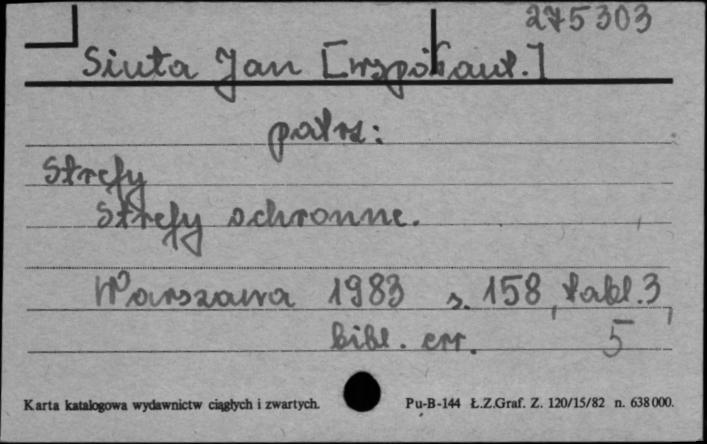 275303
Siuta Jan [współaut.]
patrz:
Strefy
Strefy ochronne.
Warszawa 1983 s. 158, tabl. 3,
bibl. err. 5
Karta katalogowa wydawnictw ciągłych i zwartych. Pu-B-144 Ł.Z.Graf. Z. 120/15/82 n. 638000.